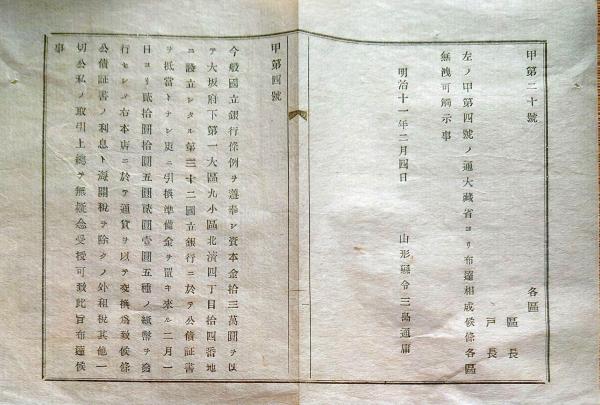 甲第二十號
各區
區長
戸長
左ノ甲第四號ノ通大藏省ヨリ布達相成候條各區
無洩可觸示事
明治十一年二月四日
山形縣令三島通庸
甲第四號
今般國立銀行條例ヲ遵奉シ資本金拾三萬圓ヲ以
テ大坂府下第一大區九小區北濱四丁目拾四番地
ニ設立シタル第三十二國立銀行ニ於テ公債証書
ヲ抵當トナシ更ニ引換準備金ヲ置キ來ル二月一
日ヨリ貳拾圓拾圓五圓貳圓壹圓五種ノ紙幣ヲ發
行セシメ右本店ニ於テ通貨ヲ以テ交換為致候條
公債証書ノ利息ト海關税ヲ除クノ外租税其他一
切公私ノ取引上總テ無疑念受授可致此旨布達候
事